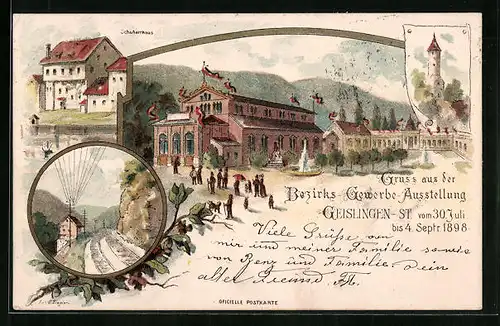 Schubarthaus
Gruss aus der
Bezirks-Gewerbe-Ausstellung
GEISLINGEN-ST. vom 30 Juli
bis 4. Septr. 1898
Viele Grüße von
mir und meiner Familie sowie
von Renz und Familie. Dein
alter Freund
OFICIELLE POSTKARTE